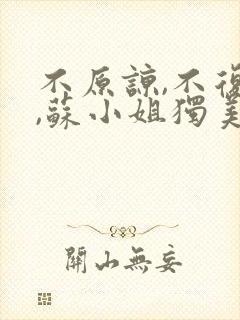 不原諒,不復
,蘇小姐獨美
開山無妄